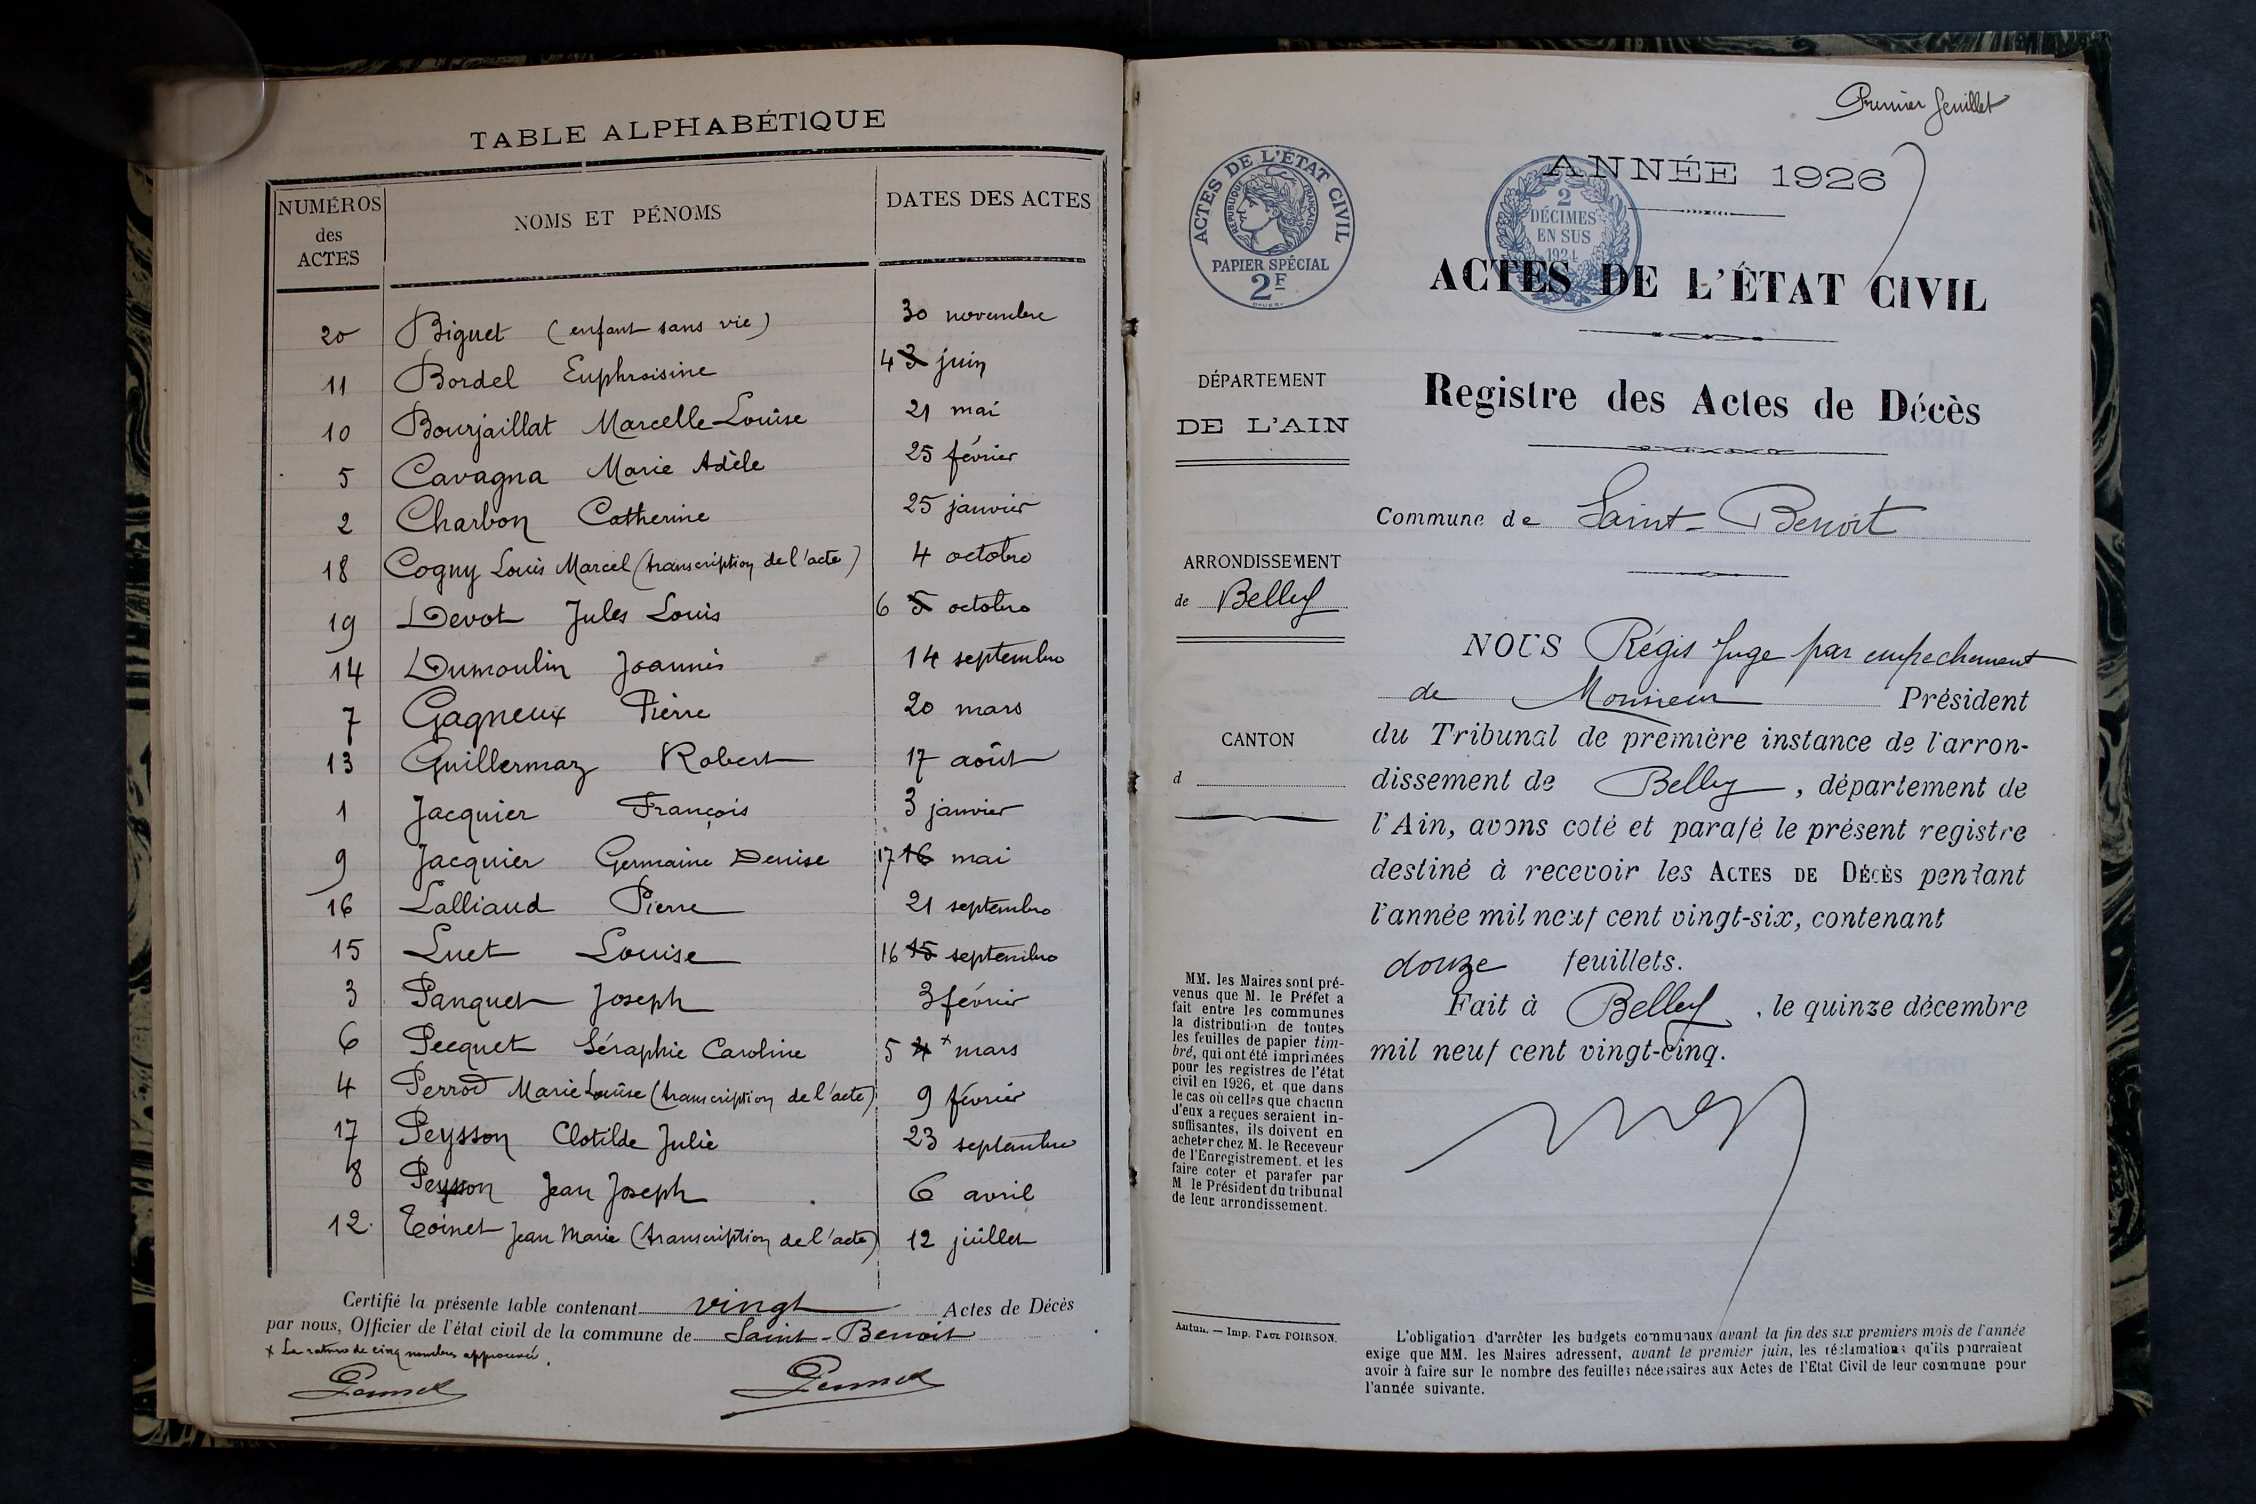 TABLE ALPHABÉTIQUE
NUMÉROS des ACTES NOMS ET PÉNOMS DATES DES ACTES
20 Biguet (enfant sans vie) 30 novembre
11 Bordel Euphroisine 4 3 juin
10 Bourjaillat Marcelle Louise 21 mai
5 Cavagna Marie Adèle 25 février
2 Charbon Catherine 25 janvier
18 Cogny Louis Marcel (transcription de l'acte) 4 octobre
19 Devot Jules Louis 6 5 octobre
14 Dumoulin Joannès 14 septembre
7 Gagneux Pierre 20 mars
13 Guillermaz Robert 17 août
1 Jacquier François 3 janvier
9 Jacquier Germaine Denise 17 16 mai
16 Lalliaud Pierre 21 septembre
15 Luet Louise 16 15 septembre
3 Panquet Joseph 3 février
6 Pecquet Séraphie Caroline 5 4 x mars
4 Perrod Marie Louise (transcription de l'acte) 9 février
17 Peysson Clotilde Julie 23 septembre
8 Peysson Jean Joseph 6 avril
12 Toinet Jean Marie (transcription de l'acte) 12 juillet
Certifié la présente table contenant vingt Actes de Décès
par nous, Officier de l'état civil de la commune de Saint-Benoit
x La rature de cinq nombres approuvée.
Premier feuillet
ACTES DE L'ÉTAT CIVIL
RÉPUBLIQUE FRANÇAISE
PAPIER SPÉCIAL
2F
2
DÉCIMES
EN SUS
1924
ANNÉE 1926
ACTES DE L'ÉTAT CIVIL
Registre des Actes de Décès
Commune de Saint-Benoit
DÉPARTEMENT
DE L'AIN
ARRONDISSEMENT
de Belley
CANTON
d
MM. les Maires sont pré-
venus que M. le Préfet a
fait entre les communes
la distribution de toutes
les feuilles de papier tim-
bré, qui ont été imprimées
pour les registres de l'état
civil en 1926, et que dans
le cas où celles que chacun
d'eux a reçues seraient in-
suffisantes, ils doivent en
acheter chez M. le Receveur
de l'Enregistrement. et les
faire coter et parafer par
M. le Président du tribunal
de leur arrondissement.
Autun. — Imp. PAUL POIRSON.
NOUS Régis Juge par empechement
de Monsieur Président
du Tribunal de première instance de l'arron-
dissement de Belley, département de
l'Ain, avons coté et parafé le présent registre
destiné à recevoir les ACTES DE DÉCÈS pendant
l'année mil neuf cent vingt-six, contenant
douze feuillets.
Fait à Belley, le quinze décembre
mil neuf cent vingt-cinq.
L'obligation d'arrêter les budgets communaux avant la fin des six premiers mois de l'année
exige que MM. les Maires adressent, avant le premier juin, les réclamations qu'ils pourraient
avoir à faire sur le nombre des feuilles nécessaires aux Actes de l'Etat Civil de leur commune pour
l'année suivante.